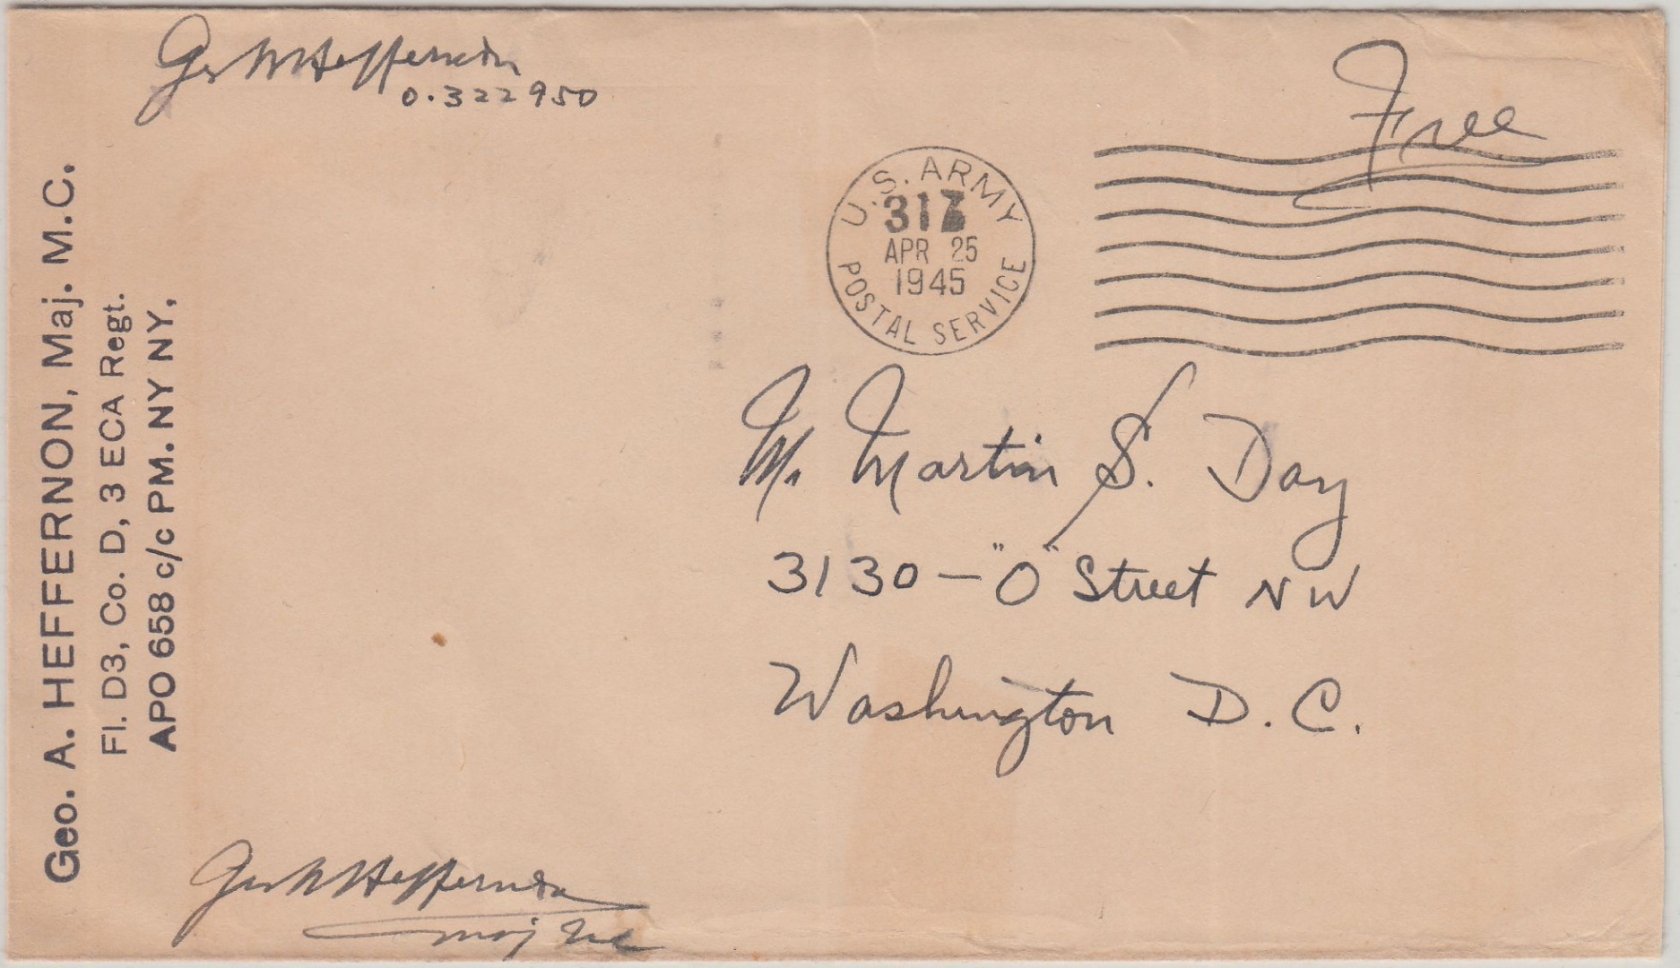 Geo A Heffernon
0.322950
Free
U.S. ARMY
317
APR 25
1945
POSTAL SERVICE
Geo. A. HEFFERNON, Maj. M.C.
Fl. D3, Co. D, 3 ECA Regt.
APO 658 c/c PM. NY NY,
Mr Martin S. Day
3130 — "O" Street NW
Washington D.C.
Geo A Heffernon
Maj MC